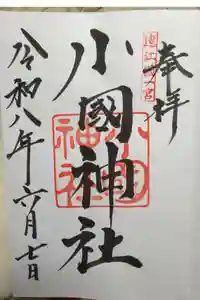 奉拝
小國神社
小國
神社
令和八年六月七日